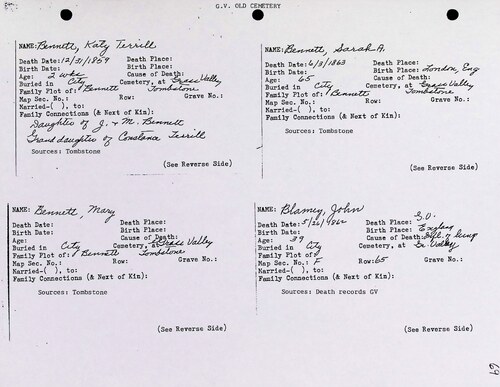 G.V. OLD CEMETERY
NAME: Bennett, Katy Terrill
Death Date: 12/31/1859 Death Place:
Birth Date: Birth Place:
Age: 2 wks Cause of Death:
Buried in City Cemetery, at Grass Valley
Family Plot of: Bennett Tombstone
Map Sec. No.: Row: Grave No.:
Married-( ), to:
Family Connections (& Next of Kin):
Daughter of J. & M. Bennett
Granddaughter of Constance Terrill
Sources: Tombstone
(See Reverse Side)
NAME: Bennett, Sarah A.
Death Date: 6/3/1863 Death Place:
Birth Date: Birth Place: London, Eng
Age: 65 Cause of Death:
Buried in City Cemetery, at Grass Valley
Family Plot of: Bennett Tombstone
Map Sec. No.: Row: Grave No.:
Married-( ), to:
Family Connections (& Next of Kin):
Sources: Tombstone
(See Reverse Side)
NAME: Bennett, Mary
Death Date: Death Place:
Birth Date: Birth Place:
Age: Cause of Death:
Buried in City Cemetery, at Grass Valley
Family Plot of: Bennett Tombstone
Map Sec. No.: Row: Grave No.:
Married-( ), to:
Family Connections (& Next of Kin):
Sources: Tombstone
(See Reverse Side)
NAME: Blamey, John
Death Date: 5/26/1862 Death Place: G.V.
Birth Date: Birth Place: England
Age: 39 Cause of Death: of lung
Buried in City Cemetery, at Gr. Valley
Family Plot of:
Map Sec. No.: F Row: 65 Grave No.:
Married-( ), to:
Family Connections (& Next of Kin):
Sources: Death records GV
(See Reverse Side)